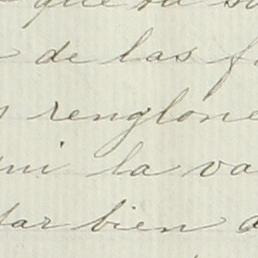 que su
de las
renglone
la va
tar bien